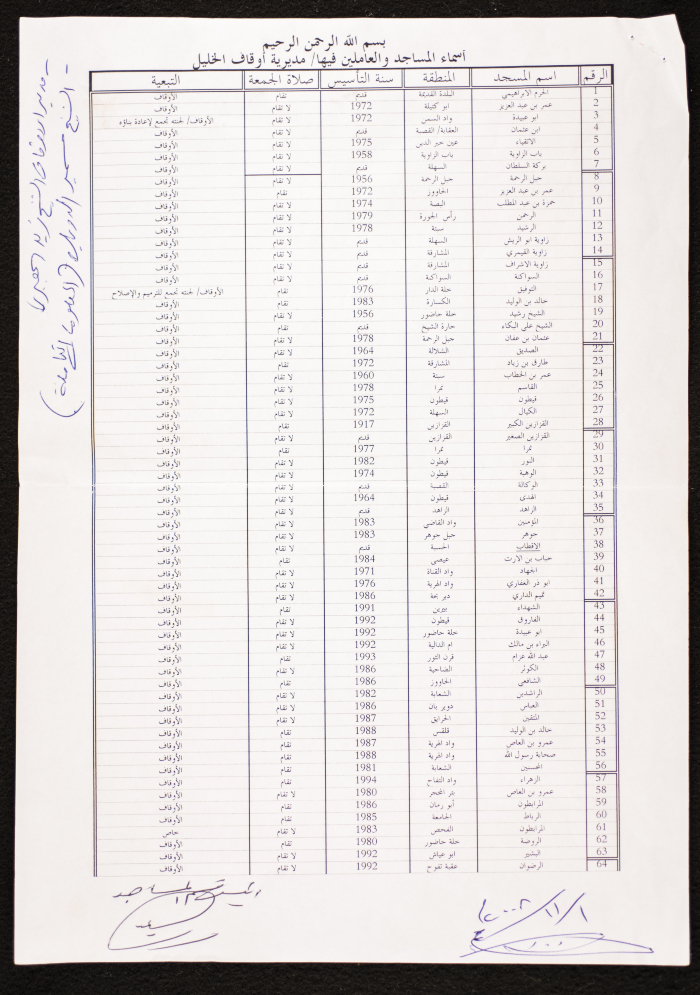 بسم الله الرحمن الرحيم
أسماء المساجد والعاملين فيها/ مديرية أوقاف الخليل
الرقم اسم المسجد المنطقة سنة التأسيس صلاة الجمعة التبعية
1 الحرم الابراهيمي البلدة القديمة قديم تقام الأوقاف
2 عمر بن عبد العزيز ابو كتيلة 1972 لا تقام الأوقاف
3 ابو عبيدة واد السمن 1972 لا تقام الأوقاف/ لجنته تجمع لإعادة بناؤه
4 ابن عثمان العقابة/ القصبة قديم لا تقام الأوقاف
5 الاتقياء عين خير الدين 1975 لا تقام الأوقاف
6 باب الزاوية باب الزاوية 1958 لا تقام الأوقاف
7 بركة السلطان السهلة قديم لا تقام الأوقاف
8 جبل الرحمة جبل الرحمة 1956 لا تقام الأوقاف
9 عمر بن عبد العزيز الحاووز 1972 تقام الأوقاف
10 حمزة بن عبد المطلب البصة 1974 لا تقام الأوقاف
11 الرحمن رأس الجورة 1979 لا تقام الأوقاف
12 الرشيد سبتة 1978 لا تقام الأوقاف
13 زاوية ابو الريش السهلة قديم لا تقام الأوقاف
14 زاوية القيمري المشارقة قديم لا تقام الأوقاف
15 زاوية الاشراف المشارقة قديم لا تقام الأوقاف
16 السواكنة السواكنة قديم لا تقام الأوقاف
17 التوفيق خلة الدار 1976 تقام الأوقاف/ لجنته تجمع للترميم والإصلاح
18 خالد بن الوليد الكسارة 1983 تقام الأوقاف
19 الشيخ رشيد خلة حاضور 1956 لا تقام الأوقاف
20 الشيخ علي البكاء حارة الشيخ قديم تقام الأوقاف
21 عثمان بن عفان جبل الرحمة 1978 لا تقام الأوقاف
22 الصديق الشلالة 1964 لا تقام الأوقاف
23 طارق بن زياد المشارقة 1972 تقام الأوقاف
24 عمر بن الخطاب سبتة 1960 لا تقام الأوقاف
25 القاسم نمرا 1978 لا تقام الأوقاف
26 قيطون قيطون 1975 لا تقام الأوقاف
27 الكيال السهلة 1972 لا تقام الأوقاف
28 القزازين الكبير القزازين 1917 تقام الأوقاف
29 القزازين الصغير القزازين قديم لا تقام الأوقاف
30 نمرا نمرا 1977 تقام الأوقاف
31 النور قيطون 1982 لا تقام الأوقاف
32 الوهبة قيطون 1974 لا تقام الأوقاف
33 الوكالة القصبة قديم لا تقام الأوقاف
34 الهدى قيطون 1964 لا تقام الأوقاف
35 الزاهد الزاهد قديم لا تقام الأوقاف
36 المؤمنين واد القاضي 1983 لا تقام الأوقاف
37 جوهر جبل جوهر 1983 لا تقام الأوقاف
38 الاقطاب الحسبة قديم لا تقام الأوقاف
39 خباب بن الارت عيصى 1984 تقام الأوقاف
40 الجهاد واد القناة 1971 لا تقام الأوقاف
41 ابو ذر الغفاري واد الهرية 1976 لا تقام الأوقاف
42 تميم الداري دير بحة 1986 لا تقام الأوقاف
43 الشهداء بيرين 1991 تقام الأوقاف
44 الفاروق قيطون 1992 لا تقام الأوقاف
45 ابو عبيدة خلة حاضور 1992 لا تقام الأوقاف
46 البراء بن مالك ام الدالية 1992 لا تقام الأوقاف
47 عبد الله عزام قرن الثور 1993 تقام الأوقاف
48 الكوثر الضاحية 1986 لا تقام الأوقاف
49 الشافعي الحاووز 1986 تقام الأوقاف
50 الراشدين الشعابة 1982 لا تقام الأوقاف
51 العباس دوير بان 1986 لا تقام الأوقاف
52 المتقين الحرايق 1987 لا تقام الأوقاف
53 خالد بن الوليد قلقس 1988 تقام الأوقاف
54 عمرو بن العاص واد الهرية 1987 تقام الأوقاف
55 صحابة رسول الله واد الهرية 1988 تقام الأوقاف
56 المحسنين الشعابة 1981 تقام الأوقاف
57 الزهراء واد التفاح 1994 تقام الأوقاف
58 عمرو بن العاص بئر المحجر 1980 لا تقام الأوقاف
59 المرابطون أبو رمان 1986 تقام الأوقاف
60 الرباط الجامعة 1985 تقام الأوقاف
61 المرابطون الفحص 1983 لا تقام خاص
62 الروضة خلة حاضور 1980 تقام الأوقاف
63 البشير ابو عياش 1992 لا تقام الأوقاف
64 الرضوان عقبة تفوح 1992 لا تقام الأوقاف